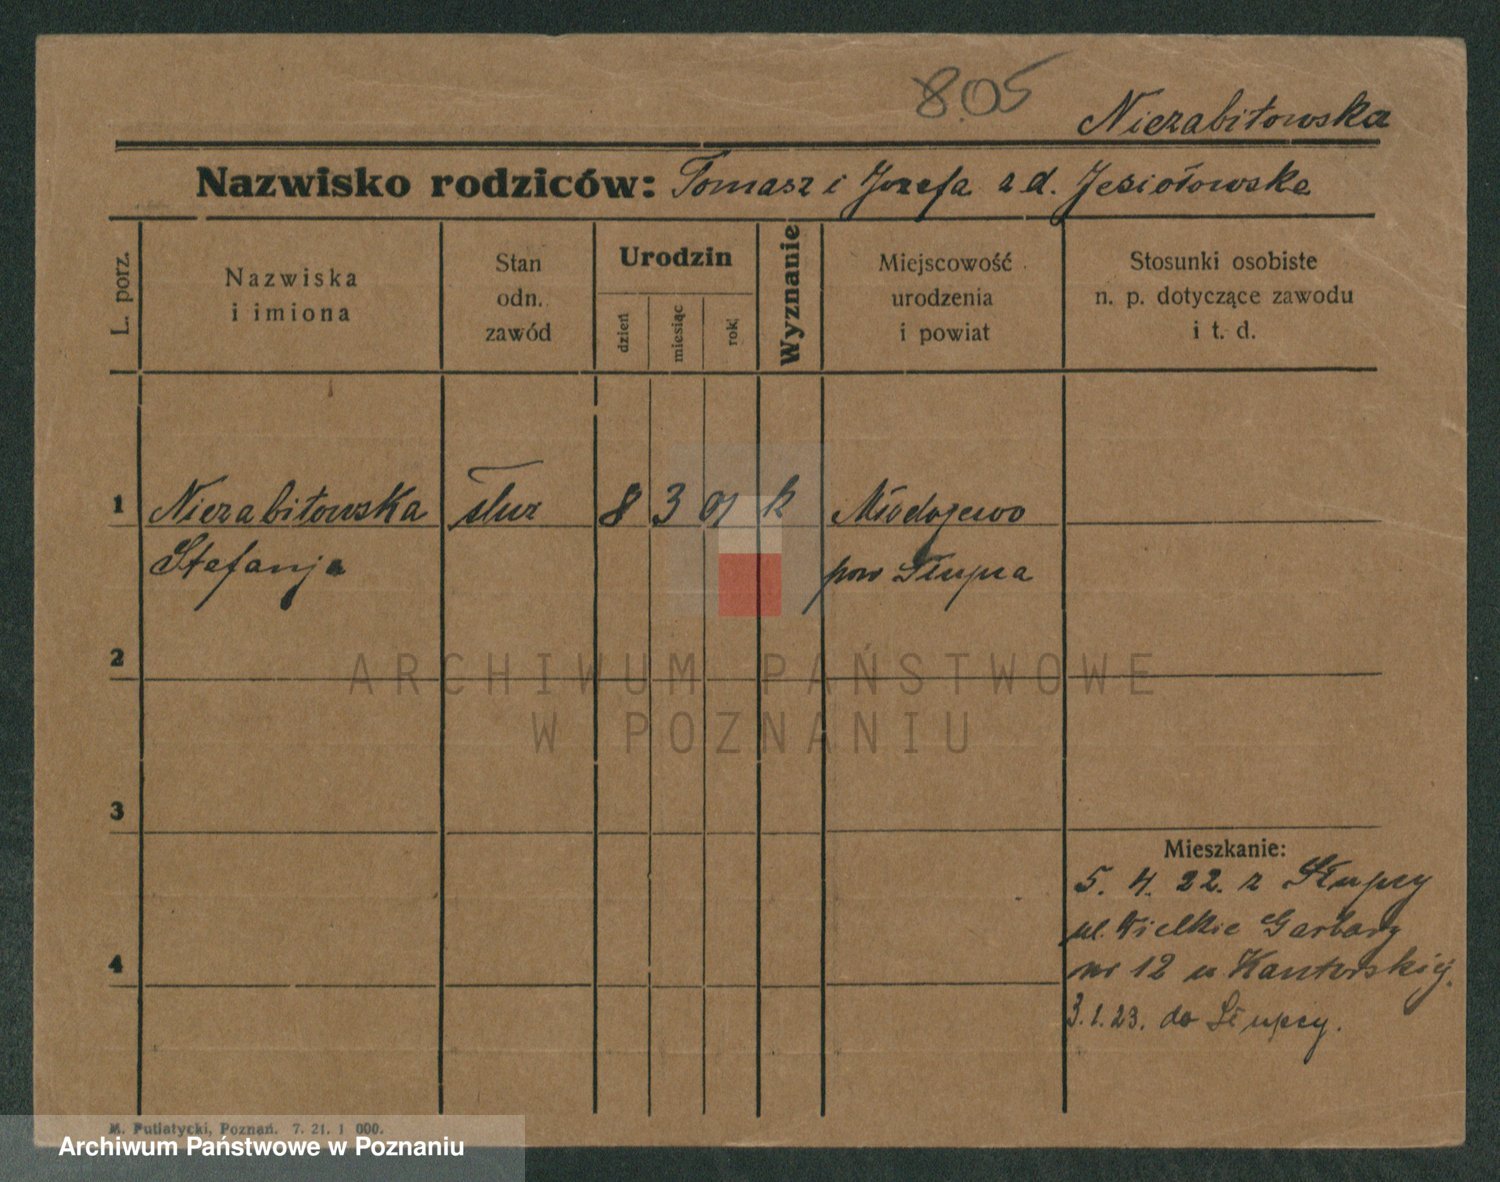 8.05
Niezabitowska
Nazwisko rodziców: Tomasz i Jozefa zd. Jesiołowska
L. porz.
Nazwiska i imiona
Stan odn. zawód
Urodzin
dzień
miesiąc
rok
Wyznanie
Miejscowość urodzenia i powiat
Stosunki osobiste n. p. dotyczące zawodu i t. d.
1 Niezabitowska służ 8 3 01 k Młodojewo
Stefanja pow Słupca
2
ARCHIWUM PAŃSTWOWE
W POZNANIU
3
Mieszkanie:
5. 4. 22. z Słupcy
ul. Wielkie Garbary
4
nr 12 u Kantorskiej.
3.1.23. do Słupcy.
M. Putiatycki, Poznań. 7. 21. 1 000.
Archiwum Państwowe w Poznaniu